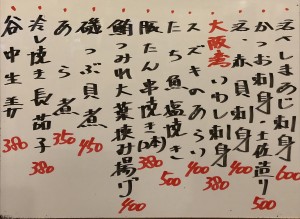 活〆しまあじ刺身 600
かつお刺身・土佐造り 500
活赤貝刺身 400
大阪湾いわし刺身 380
スズキのあらい 400
たちうお塩焼き 500
豚たん串焼き(2本) 380
鮪つみれ大葉挟み揚げ 400
磯つぶ貝煮 450
あら煮 350
冷し焼き長茄子 380
谷中生姜 380